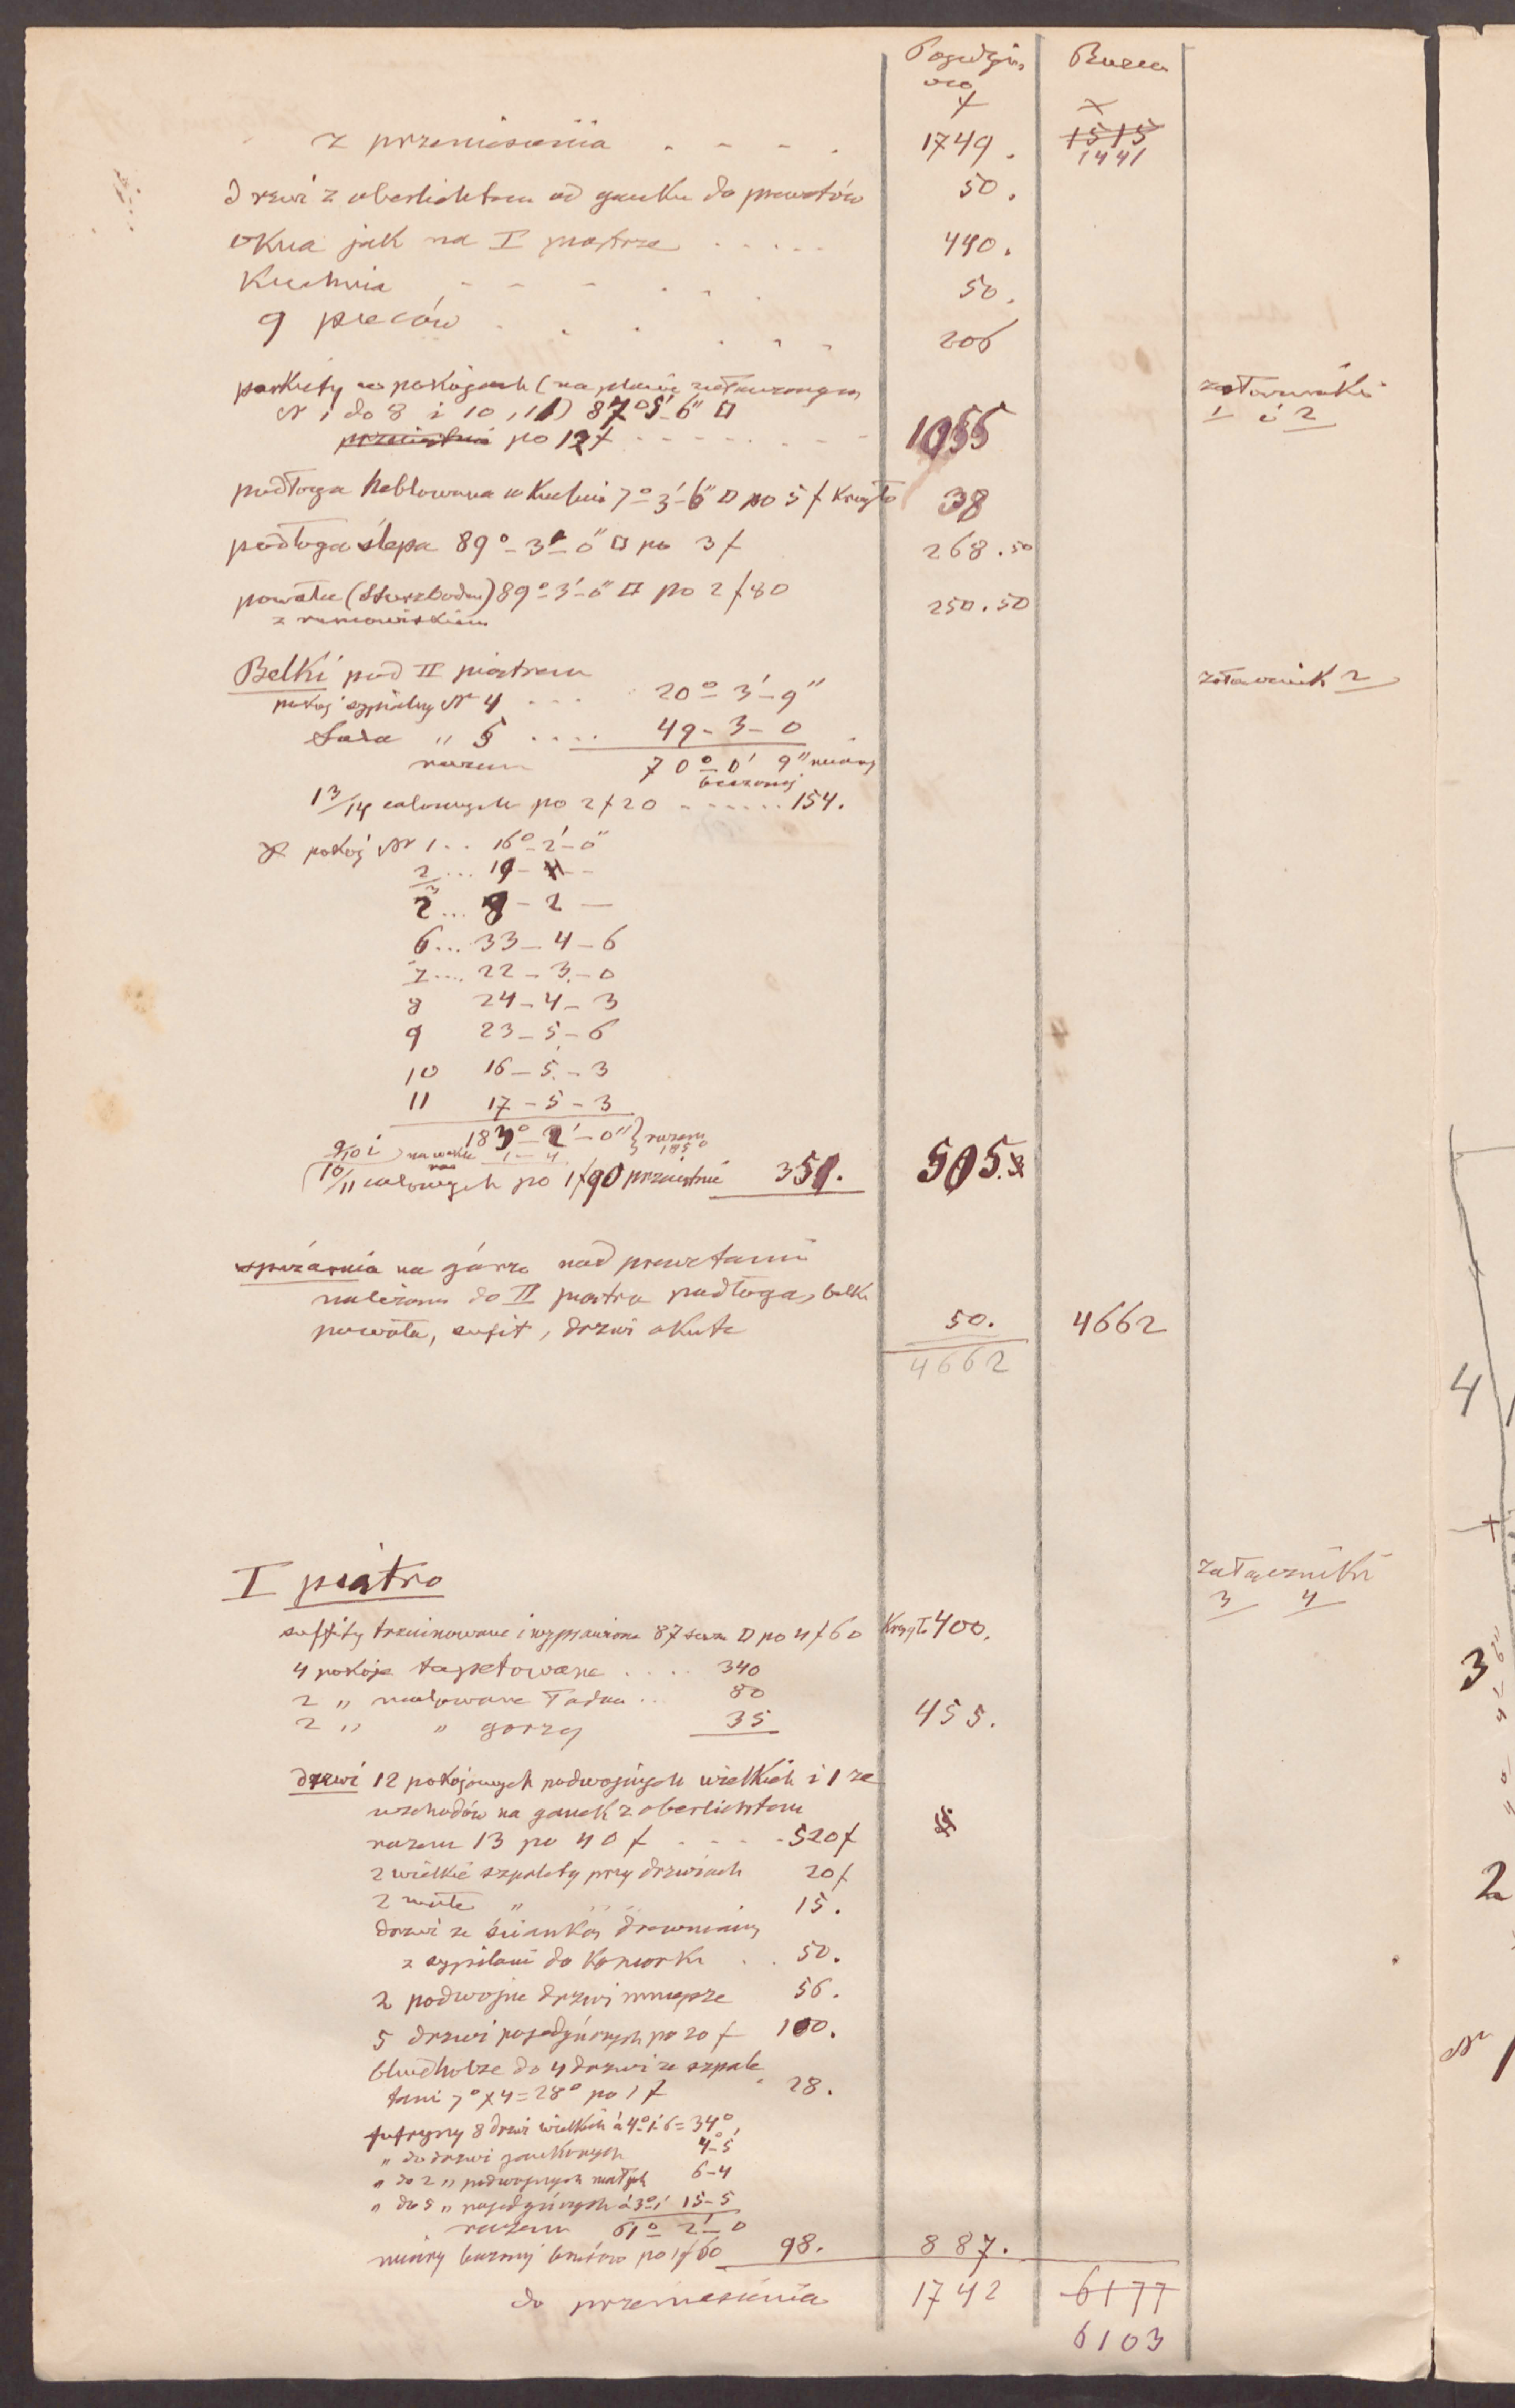 Razem
z przeniesienia . . . . 1749. ~~1515~~ 1441
Drzwi z oberlichtem od ganku do prewetów 50.
okna jak na I piątrze . . . . . 490.
Kuchnia . . . . . . 50.
9 pieców . . . . . . 206
parkiety w pokojach (na planie
№ 1 do 8 i 10, 11) 87°5'-6" □
po 12 f . . . . . . 1055
załączniki
1 i 2
podłoga heblowana w kuchni 7°-3'-6" □ po 5 f 38
podłoga ślepa 89°-3'-0" □ po 3 f 268.50
powała (Sturzboden) 89°-3'-0" □ po 2 f 80 250.50
z rumowiskiem
Belki pod II piątrem załącznik 2
pokój sypialny № 4 . . . 20°-3'-9"
Sala " 5 . . . . 49-3-0
razem 70°-0' 9" miary
bieżącej
13/14 calowych po 2 f 20 . . . . . . 154.
pokój № 1 . . 16°-2'-0"
2 . . . 19-
. . . 8-2 —
6 . . . 33-4-6
7 . . . . 22-3-0
8 24-4-3
9 23-5-6
10 16-5-3
11 17-5-3
183°-2'-0" } razem
9/10 i
10/11 calowych po 1 f 90 przeciętnie 351. 505.
spiżarnia na górze nad prewetami
należąca do II piątra podłoga, belki
powała, sufit, drzwi okute 50. 4662
4662
I piątro załączniki
3 4
suffity trzcinowane i wyprawione 87 □ po 4 f 60 400.
4 pokoje tapetowane . . . . 340
2 " malowane ładnie . . 80
2 " " gorzej 35 455.
drzwi 12 pokojowych podwojnych wielkich i 1 ze
wschodów na ganek z oberlichtem
razem 13 po 40 f . . . . 520 f
2 wielkie szpalety przy drzwiach 20 f
2 małe " " " 15.
drzwi ze ścianką drewnianą
z sypialni do komorki . . 50.
2 podwojne drzwi mniejsze 56.
5 drzwi pojedyńczych po 20 f 100.
do 4 drzwi ze szpale
tami 7° x 4 = 28° po 1 f 28.
futryny 8 drzwi wielkich á 4°-1'-6 = 34°
" do drzwi gankowych 4°-5'
" do 2 " podwojnych małych 6-4
" do 5 " pojedyńczych á 3°-1' 15-5
razem 61°-2'-0
miary po 1 f 60 98. 887.
do przeniesienia 1742 ~~6177~~
6103
4
3
2
№ 1